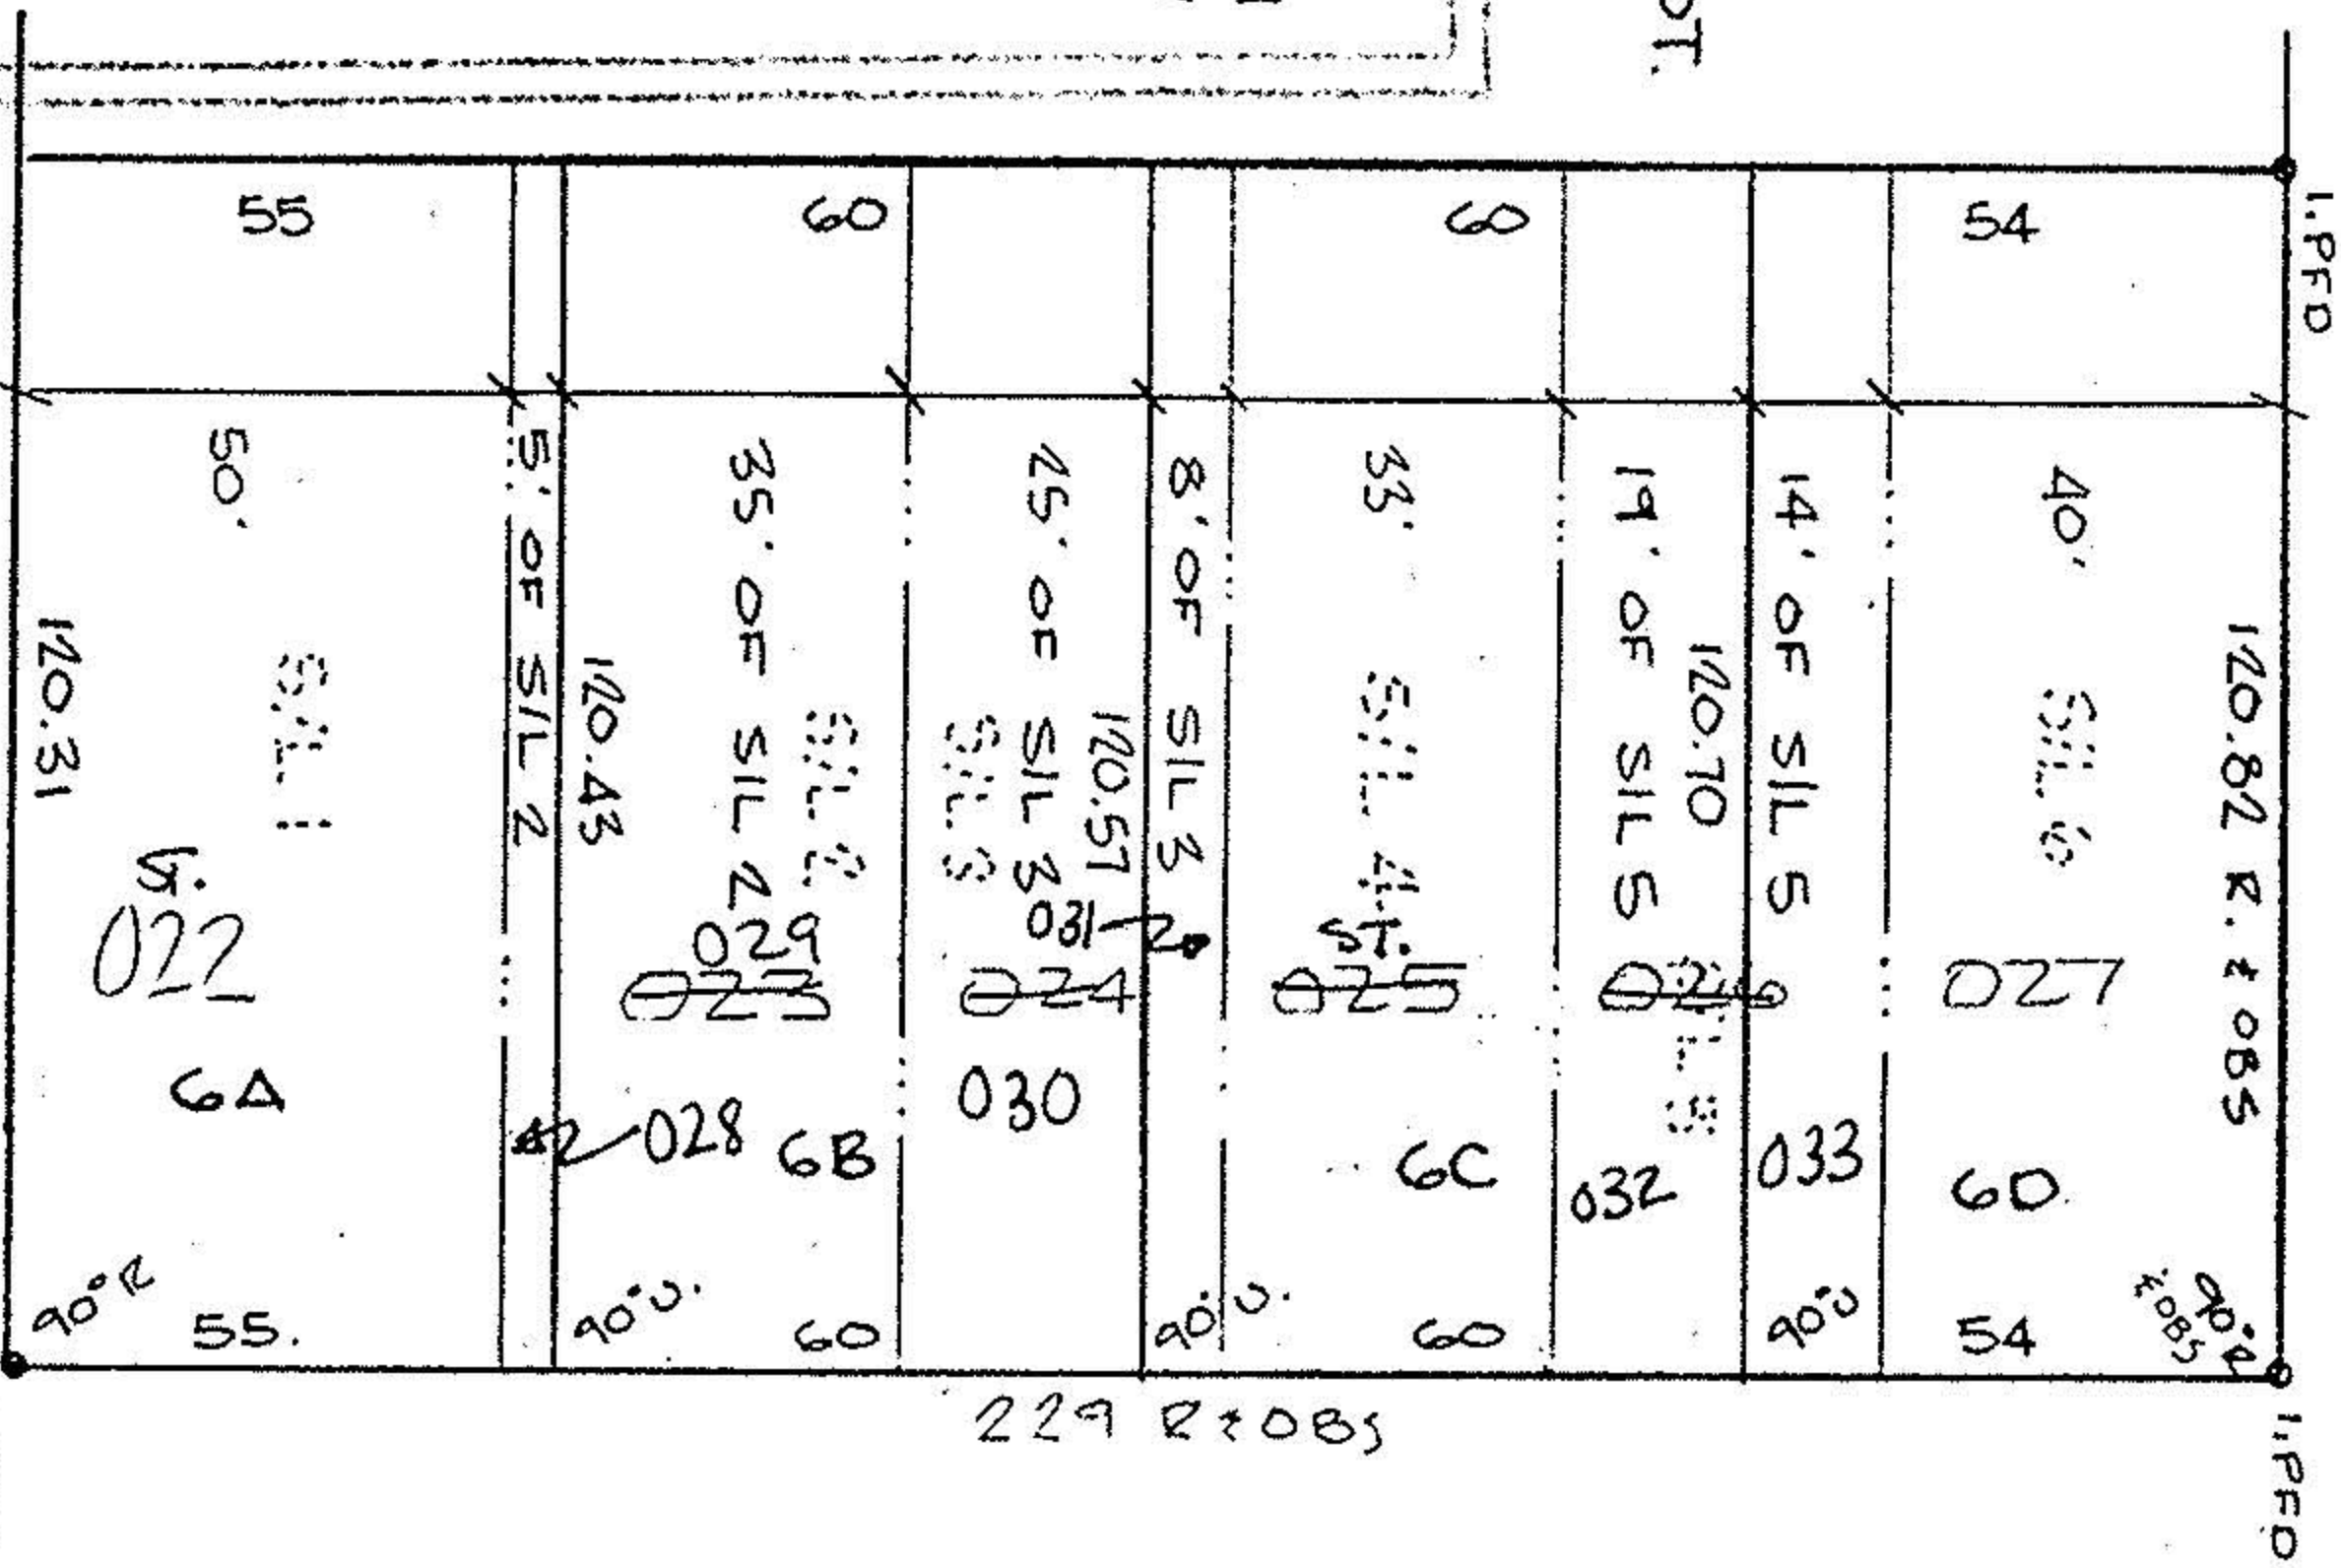 OT.
I.PFD
55
60
60
54
50'
5' OF S/L 2
35' OF S/L 2
25' OF S/L 3
8' OF S/L 3
33'
19' OF S/L 5
14' OF S/L 5
40'
120.31
S/L 1
120.43
S/L 2
S/L 3
120.57
S/L 4
120.70
S/L 6
120.82 R. & OBS
ST.
022
029
023
031
024
ST.
025
026
027
6A
028
6B
030
6C
032
033
6D
90° R
55.
90° U.
60
90° U.
60
90° U
54
90° R
& OBS
229 R & OBS
I.PFD